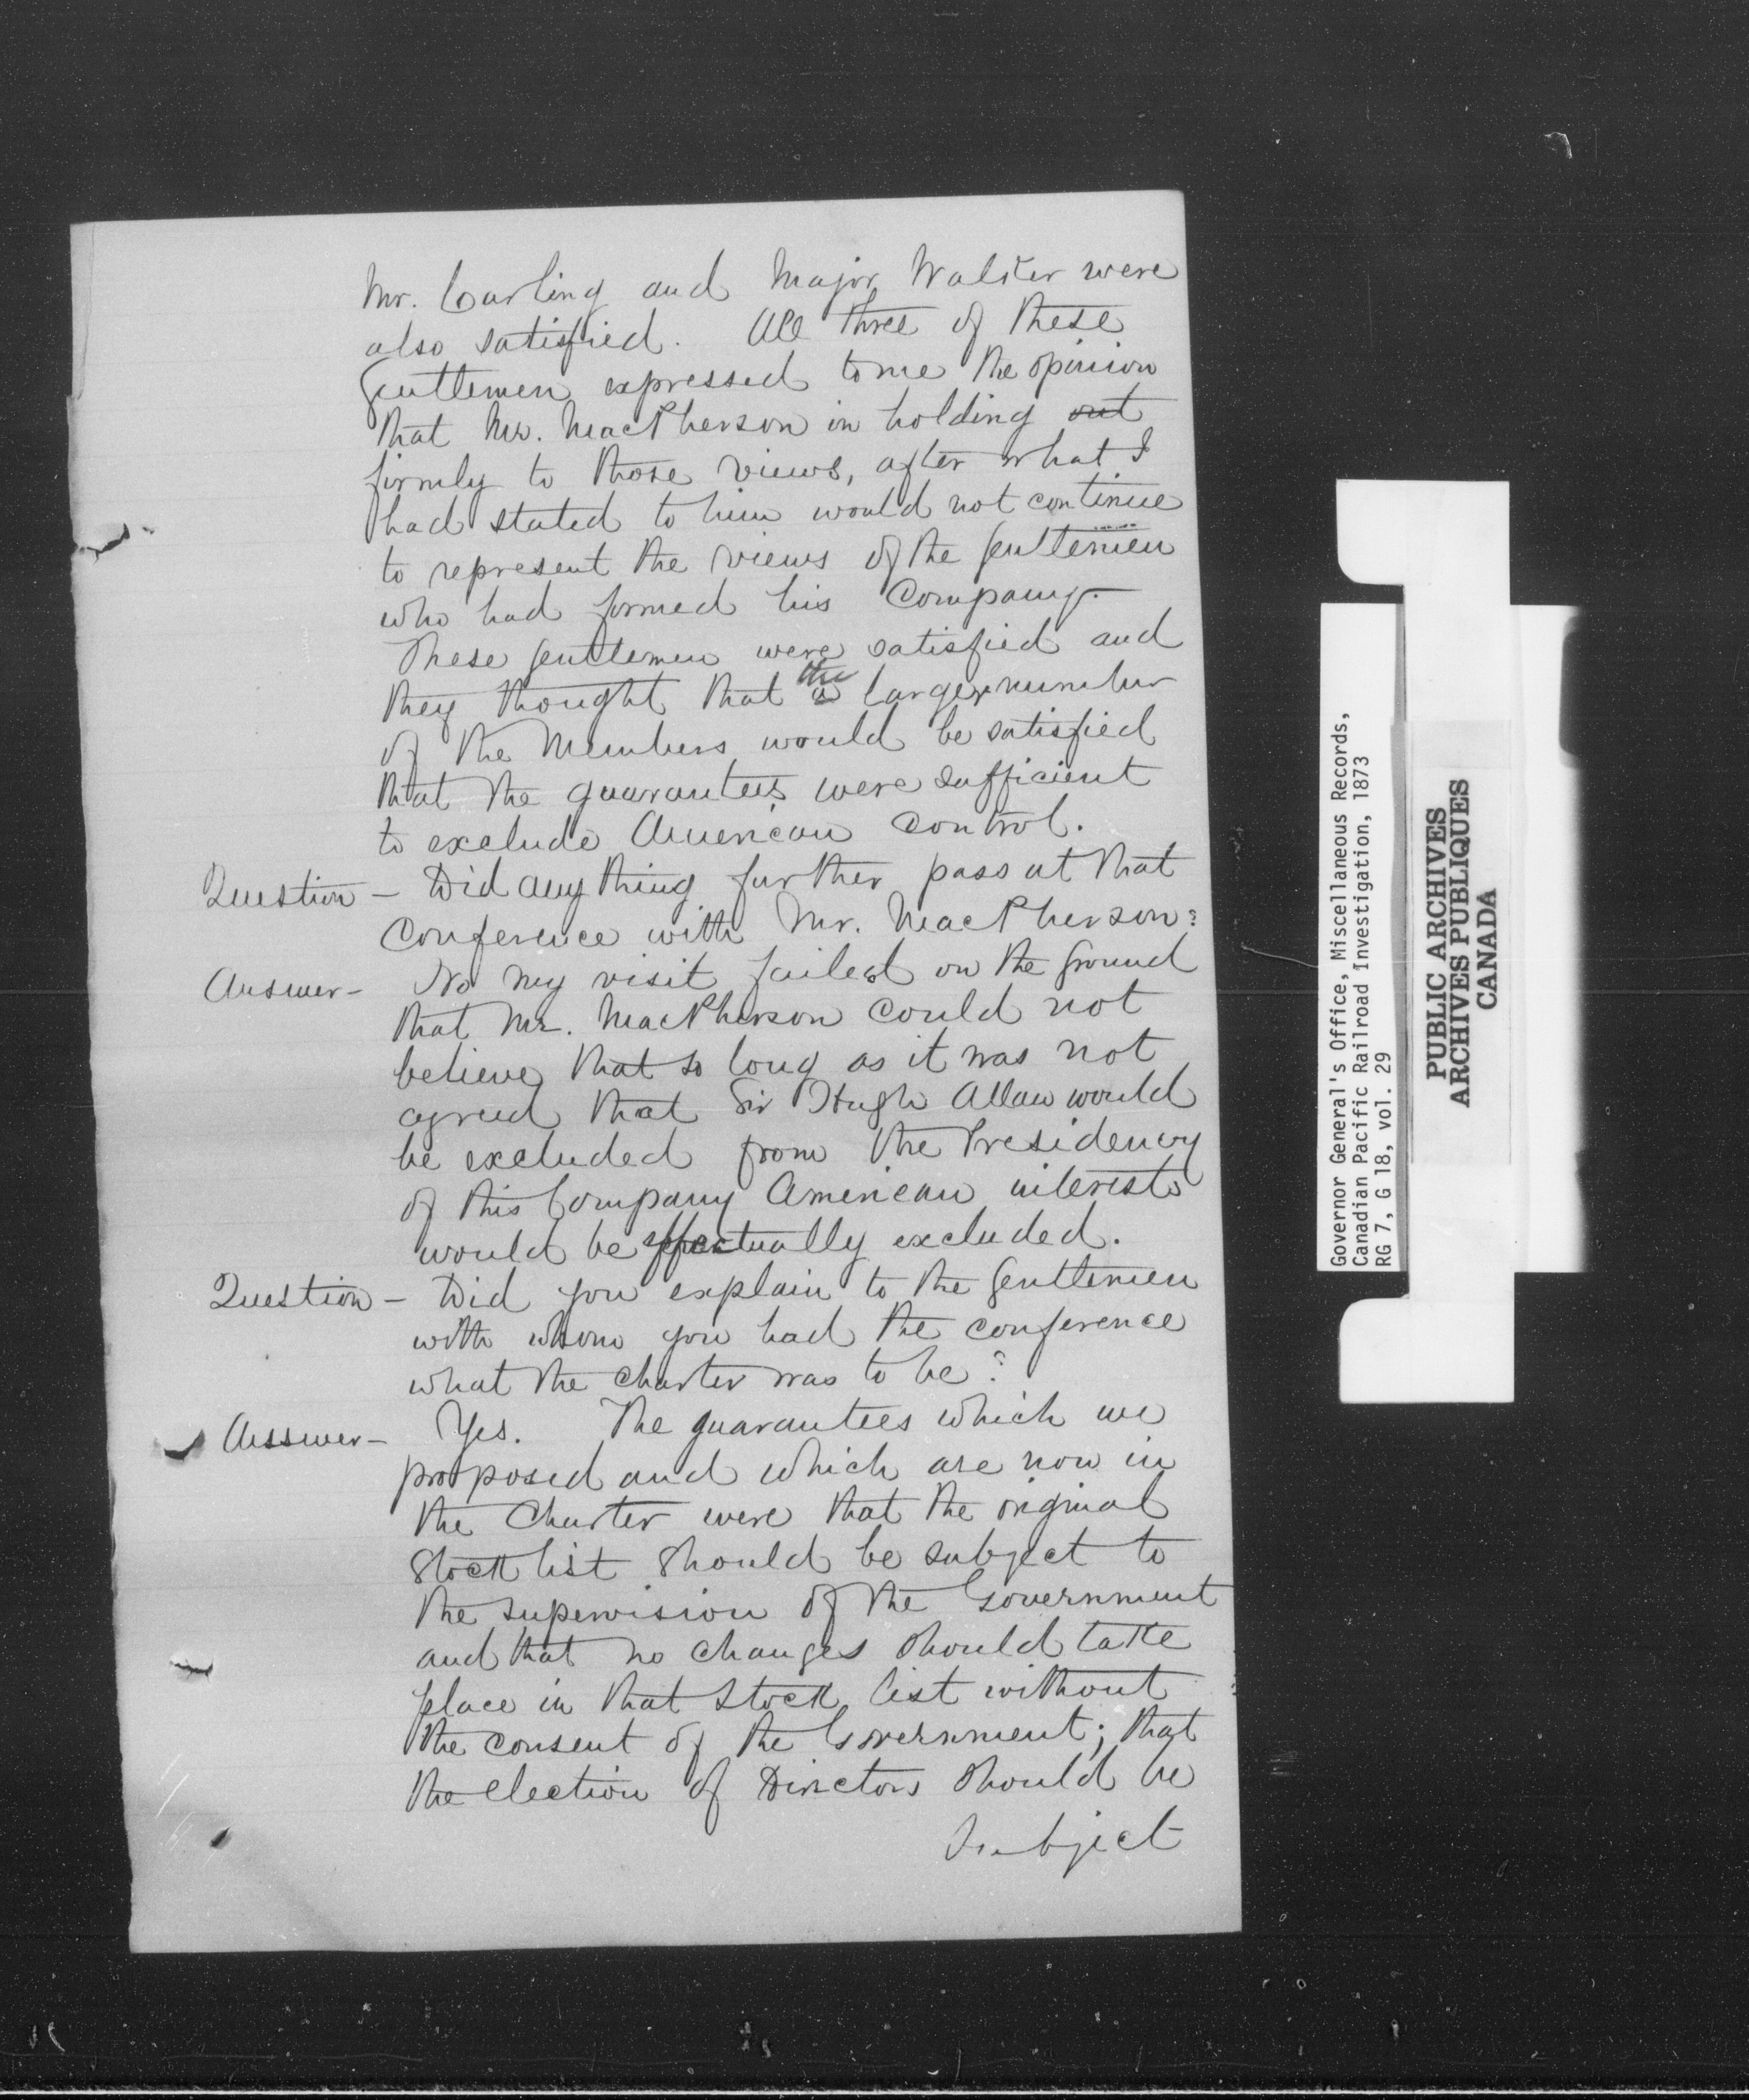 Mr. Carling and Major Walker were
also satisfied. All three of these
Gentlemen expressed to me the opinion
that Mr. MacPherson in holding out
firmly to those views, after what I
had stated to him would not continue
to represent the views of the Gentlemen
who had formed his Company.
These Gentlemen were satisfied and
the
they thought that a larger number
of the Members would be satisfied
that the guarantees were sufficient
to exclude American Control.
Question - Did any thing further pass at that
Conference with Mr. MacPherson?
Answer - No my visit failed on the ground
that Mr. MacPherson could not
believe that so long as it was not
agreed that Sir Hugh Allan would
be excluded from the Presidency
of this Company American interests
would be effectually excluded.
Question - Did you explain to the Gentlemen
with whom you had the conference
what the charter was to be?
Answer - Yes. The guarantees which we
proposed and which are now in
the Charter were that the original
Stock list should be subject to
the supervision of the Government
and that no changes should take
place in that Stock list without
the consent of the Government; that
the election of Directors should be
Subject
Governor General's Office, Miscellaneous Records,
Canadian Pacific Railroad Investigation, 1873
RG 7, G 18, vol. 29
PUBLIC ARCHIVES
ARCHIVES PUBLIQUES
CANADA